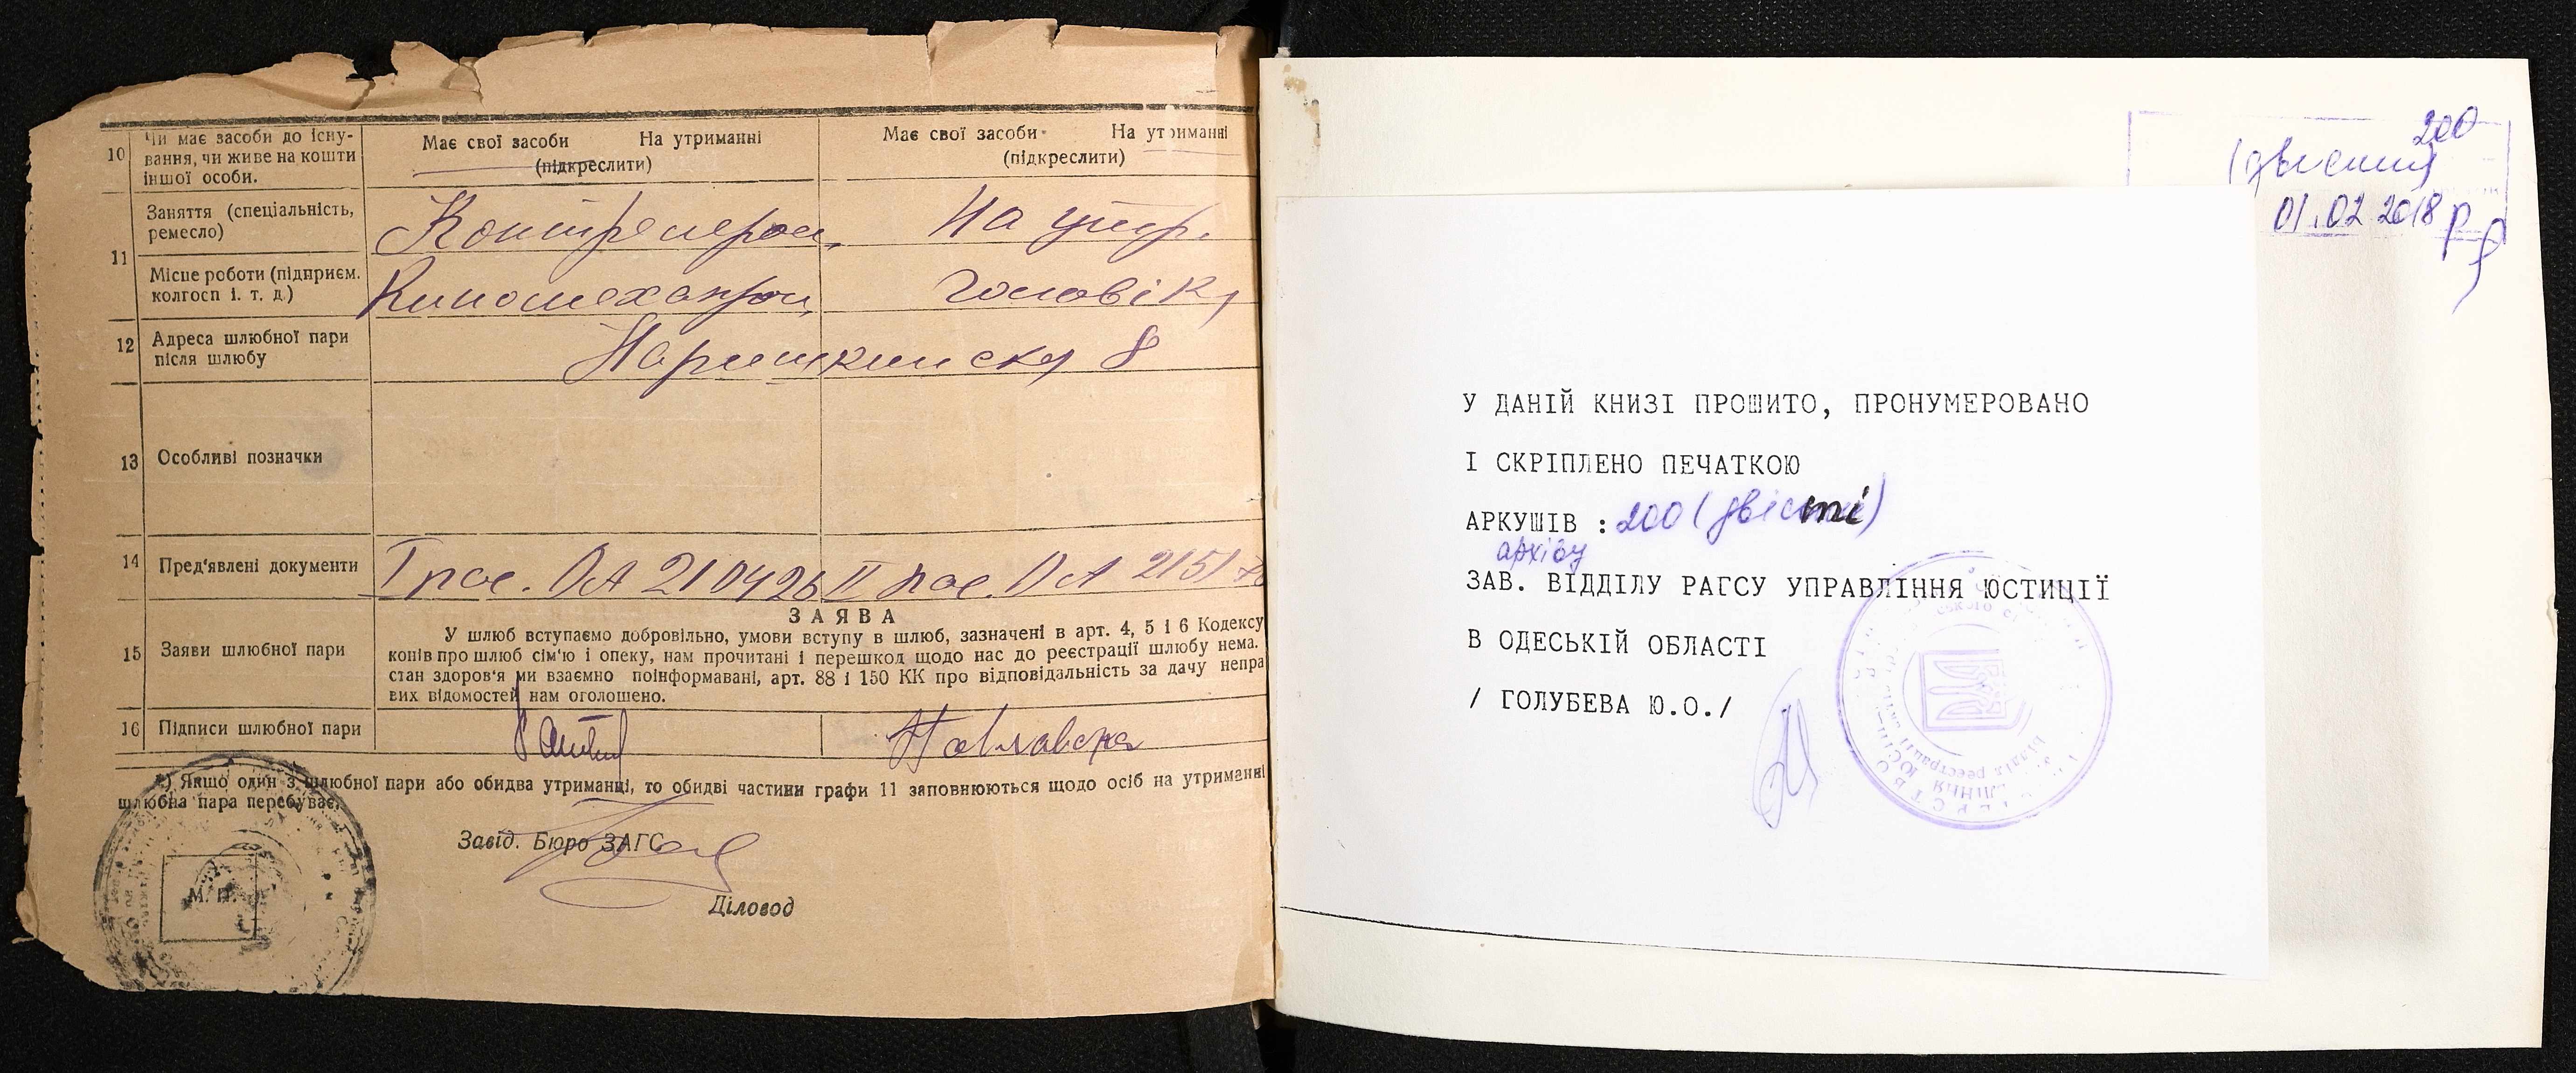 10 Чи має засоби до існу-
вання, чи живе на кошти
іншої особи.
Має свої засоби На утриманні
(підкреслити)
Має свої засоби На утриманні
(підкреслити)
11 Заняття (спеціальність,
ремесло)
На утр.
Місце роботи (підприєм.
колгосп і. т. д.)
Киномеханіком
Чоловіка
12 Адреса шлюбної пари
після шлюбу
Наришкинска 8
13 Особливі позначки
14 Пред'явлені документи
I пас. ОА 210426 II пас. ОА 2151
ЗАЯВА
15 Заяви шлюбної пари
У шлюб вступаємо добровільно, умови вступу в шлюб, зазначені в арт. 4, 5 і 6 Кодексу
конів про шлюб сім'ю і опеку, нам прочитані і перешкод щодо нас до реєстрації шлюбу нема.
стан здоров'я ми взаємно поінформавані, арт. 88 і 150 КК про відповідальність за дачу непра
вих відомостей нам оголошено.
16 Підписи шлюбної пари
*) Якщо один з шлюбної пари або обидва утриманці, то обидві частини графи 11 заповнюються щодо осіб на утриманні
шлюбна пара перебуває.
Завід. Бюро ЗАГС
М. П.
Діловод
200
(двісті)
01.02.2018 р
У ДАНІЙ КНИЗІ ПРОШИТО, ПРОНУМЕРОВАНО
І СКРІПЛЕНО ПЕЧАТКОЮ
АРКУШІВ : 200 (двісті)
архіву
ЗАВ. ВІДДІЛУ РАГСУ УПРАВЛІННЯ ЮСТИЦІЇ
В ОДЕСЬКІЙ ОБЛАСТІ
/ ГОЛУБЕВА Ю.О./